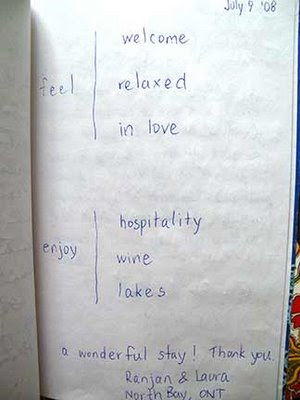 July 9 '08
welcome
feel relaxed
in love
hospitality
enjoy wine
lakes
a wonderful stay! Thank you.
Ranjan & Laura
North Bay, ONT